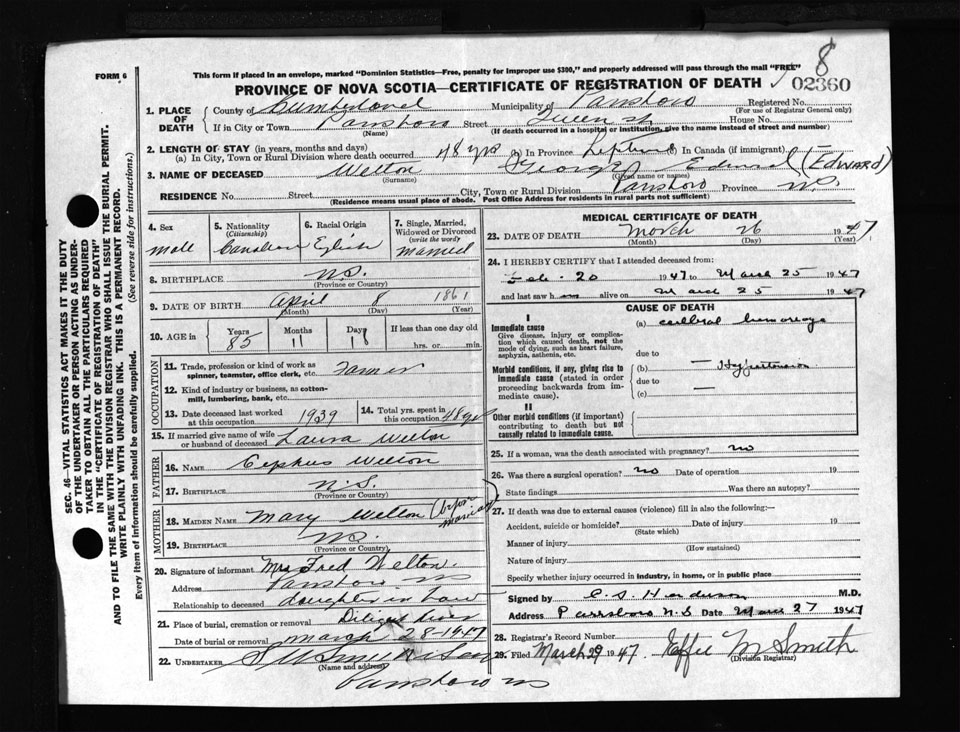 8
FORM 6
This form if placed in an envelope, marked "Dominion Statistics—Free, penalty for improper use $300," and properly addressed will pass through the mail "FREE"
PROVINCE OF NOVA SCOTIA—CERTIFICATE OF REGISTRATION OF DEATH
02360
1. PLACE OF DEATH
County of Cumberland Municipality of Parrsboro Registered No.
(For use of Registrar General only)
If in City or Town Parrsboro Street Queen St House No.
(Name) (If death occurred in a hospital or institution, give the name instead of street and number)
2. LENGTH OF STAY (in years, months and days)
(a) In City, Town or Rural Division where death occurred 48 yrs (b) In Province (c) In Canada (if immigrant)
3. NAME OF DECEASED Welton George Edward (EDWARD)
(Surname) (Given name or names)
RESIDENCE No. Street City, Town or Rural Division Parrsboro Province N.S.
(Residence means usual place of abode. Post Office Address for residents in rural parts not sufficient)
4. Sex
male
5. Nationality
(Citizenship)
Canadian
6. Racial Origin
English
7. Single, Married, Widowed or Divorced
(write the word)
married
8. BIRTHPLACE N.S.
(Province or Country)
9. DATE OF BIRTH April 8 1861
(Month) (Day) (Year)
10. AGE in Years 85 Months 11 Days 18 If less than one day old
hrs. or min.
OCCUPATION
11. Trade, profession or kind of work as spinner, teamster, office clerk, etc. Farmer
12. Kind of industry or business, as cotton-mill, lumbering, bank, etc.
13. Date deceased last worked at this occupation 1939
14. Total yrs. spent in this occupation 48 yrs
15. If married give name of wife or husband of deceased Laura Welton
FATHER
16. NAME Cephus Welton
17. BIRTHPLACE N.S.
(Province or Country)
MOTHER
18. MAIDEN NAME Mary Welton (before married)
19. BIRTHPLACE N.S.
(Province or Country)
20. Signature of informant Mrs Fred Welton
Address Parrsboro N.S.
Relationship to deceased daughter in law
21. Place of burial, cremation or removal Diligent River
Date of burial or removal March 28-1947
22. UNDERTAKER
(Name and address)
Parrsboro N.S.
MEDICAL CERTIFICATE OF DEATH
23. DATE OF DEATH March 26 1947
(Month) (Day) (Year)
24. I HEREBY CERTIFY that I attended deceased from:
Feb. 20 1947 to March 25 1947
and last saw him alive on March 25 1947
CAUSE OF DEATH
I
Immediate cause
Give disease, injury or complication which caused death, not the mode of dying, such as heart failure, asphyxia, asthenia, etc.
Morbid conditions, if any, giving rise to immediate cause (stated in order proceeding backwards from immediate cause).
II
Other morbid conditions (if important) contributing to death but not causally related to immediate cause.
(a) cerebral hemorrhage
due to
(b) Hypertension
due to
(c)
25. If a woman, was the death associated with pregnancy? no
26. Was there a surgical operation? no Date of operation 19
State findings Was there an autopsy?
27. If death was due to external causes (violence) fill in also the following:—
Accident, suicide or homicide? Date of injury 19
(State which)
Manner of injury
(How sustained)
Nature of injury
Specify whether injury occurred in industry, in home, or in public place
Signed by M.D.
Address Parrsboro N.S Date March 27 1947
28. Registrar's Record Number
29. Filed March 29 1947. Effie M Smith
(Division Registrar)
SEC. 46—VITAL STATISTICS ACT MAKES IT THE DUTY
OF THE UNDERTAKER OR PERSON ACTING AS UNDERTAKER TO OBTAIN ALL THE PARTICULARS REQUIRED
IN THE "CERTIFICATE OF REGISTRATION OF DEATH"
AND TO FILE THE SAME WITH THE DIVISION REGISTRAR WHO SHALL ISSUE THE BURIAL PERMIT.
WRITE PLAINLY WITH UNFADING INK. THIS IS A PERMANENT RECORD.
Every item of information should be carefully supplied. (See reverse side for instructions.)